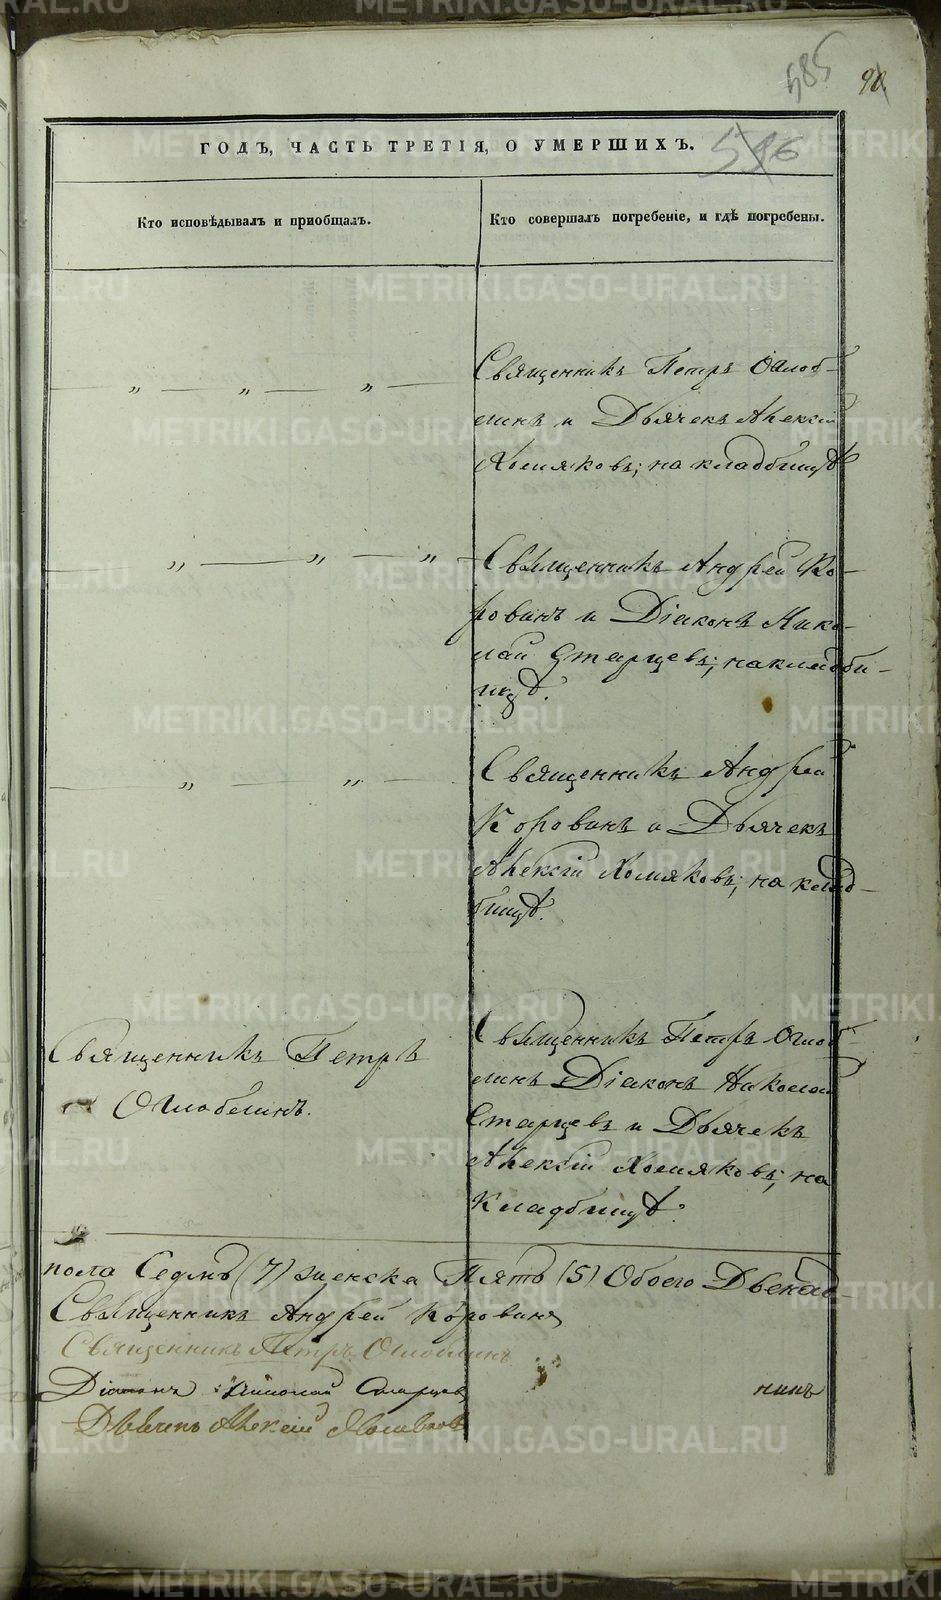 585
90
ГОДЪ, ЧАСТЬ ТРЕТІЯ, О УМЕРШИХЪ.
596
Кто исповѣдывалъ и приобщалъ.
Кто совершалъ погребеніе, и гдѣ погребены.
— „ — „ — „ —
Священникъ Петръ Оглоб-
линъ и Дьячекъ Алексій
Хомяковъ; на кладбищѣ
— „ — „ — „ —
Священникъ Андрей Ко-
ровинъ и Діаконъ Нико-
лай Старцевъ; на кладби-
щѣ.
— „ — „ —
Священникъ Андрей
Коровинъ и Дьячекъ
Алексій Хомяковъ; на клад-
бищѣ.
Священникъ Петръ
Оглоблинъ.
Священникъ Петръ Оглоб-
линъ Діаконъ Николай
Старцевъ и Дьячекъ
Алексій Хомяковъ; на
Кладбищѣ.
пола Седмь (7) женска Пять (5) Обоего Двенад-
Священникъ Андрей Коровинъ
Священникъ Петръ Оглоблинъ
Діаконъ Николай Старцевъ
Дьячекъ Алексій Хомяковъ
METRIKI.GASO-URAL.RU